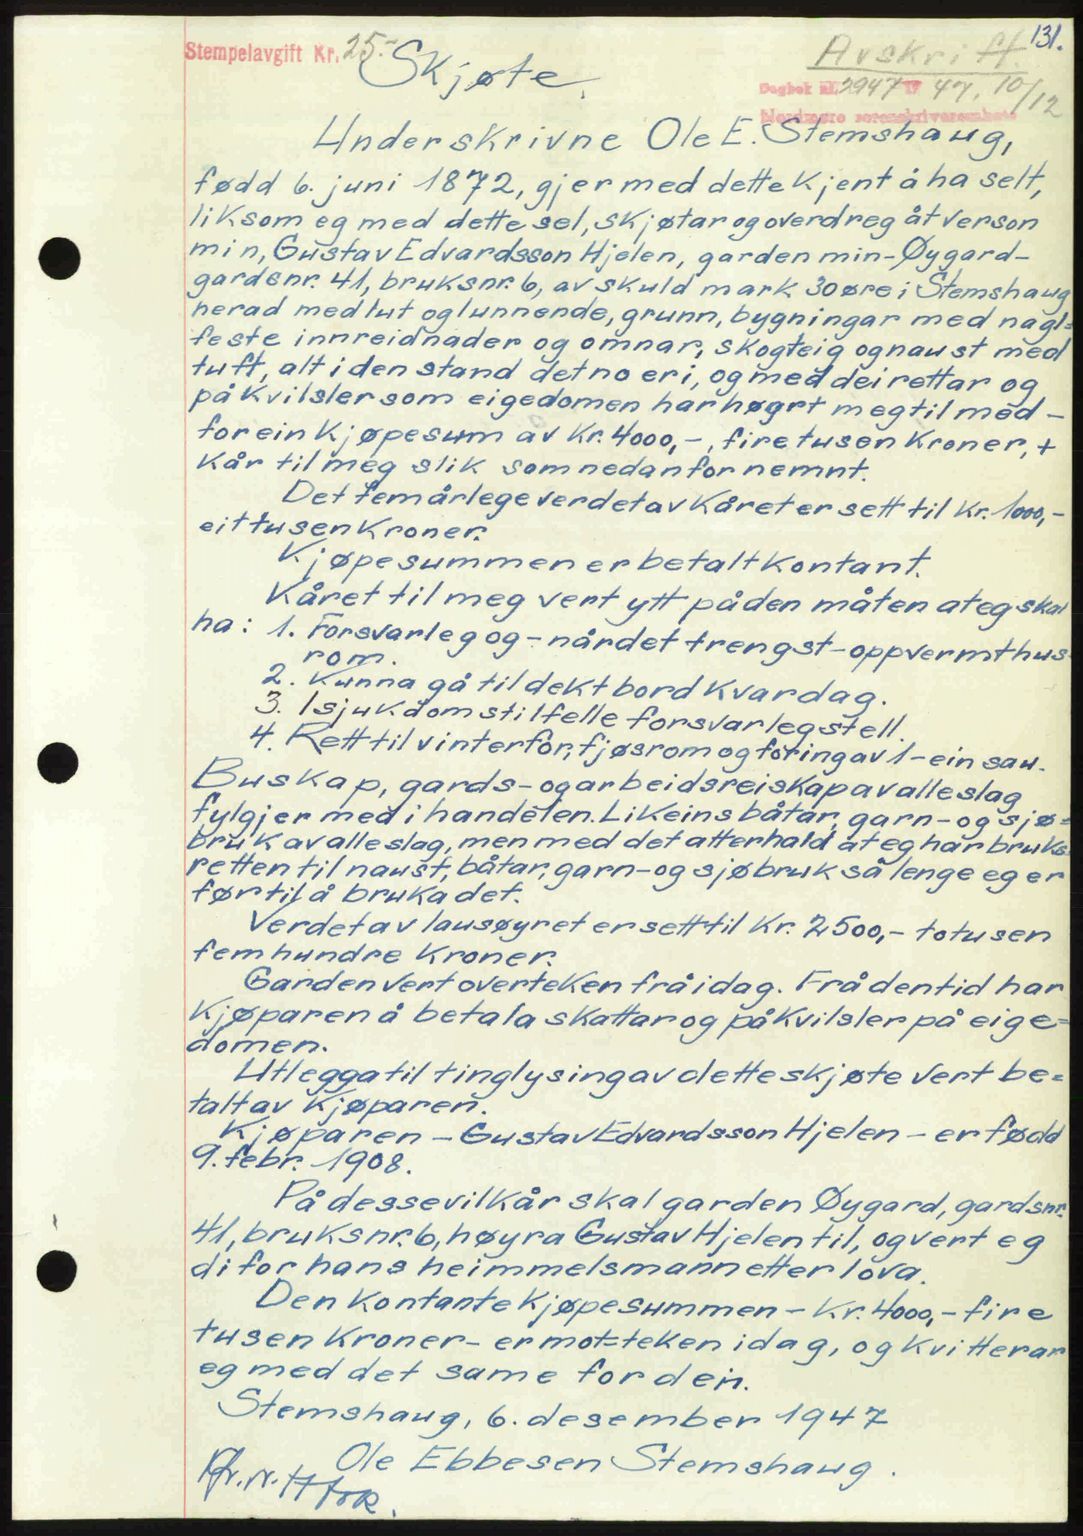 131.
Stempelavgift Kr. 25.-
Avskrift.
Skjøte.
Dagbok nr. 2947 47. 10/12
Nordmøre sorenskriverembete
Underskrivne Ole E. Stemshaug,
fødd 6. juni 1872, gjer med dette kjent å ha selt,
liksom eg med dette sel, skjøtar og overdreg åt verson
min, Gustav Edvardsson Hjelen, garden min - Øygard -
gardsnr. 41, bruksnr. 6, av skuld mark 30 øre i Stemshaug
herad med lut og lunnende, grunn, bygningar med nagl=
feste innreidnader og omnar, skogteig og naust med
tuft, alt i den stand det no er i, og med dei rettar og
påkvilsler som eigedomen har høyrt meg til med -
for ein kjøpesum av Kr. 4000,-, fire tusen kroner, +
kår til meg slik som nedanfor nemnt.
Det femårlege verdet av kåret er sett til Kr. 1000,-
eittusen kroner.
Kjøpesummen er betalt kontant.
Kåret til meg vert ytt på den måten at eg skal
ha: 1. Forsvarleg og - når det trengst - oppvermt hus=
rom.
2. Kunna gå til dekt bord kvar dag.
3. I sjukdomstilfelle forsvarleg stell.
4. Rett til vinterfôr, fjøsrom og fôring av 1 - ein sau.
Buskap, gards- og arbeidsreiskap av alle slag
fylgjer med i handelen. Likeins båtar, garn- og sjø=
bruk av alle slag, men med det atterhald at eg har bruks=
retten til naust, båtar, garn- og sjøbruk så lenge eg er
før til å bruka det.
Verdet av lausøyret er sett til Kr. 2500,- totusen
femhundre kroner.
Garden vert overteken frå i dag. Frå den tid har
kjøparen å betala skattar og påkvilsler på eige=
domen.
Utlegga til tinglysing av dette skjøte vert be=
talt av kjøparen.
Kjøparen - Gustav Edvardsson Hjelen - er fødd
9. febr. 1908.
På desse vilkår skal garden Øygard, gardsnr.
41, bruksnr. 6, høyra Gustav Hjelen til, og vert eg
difor hans heimmelsmann etter lova.
Den kontante kjøpesummen - Kr. 4000,- fire
tusen kroner - er mot=teken i dag, og kvitterar
eg med det same for den.
Stemshaug, 6. desember 1947
Ole Ebbesen Stemshaug.